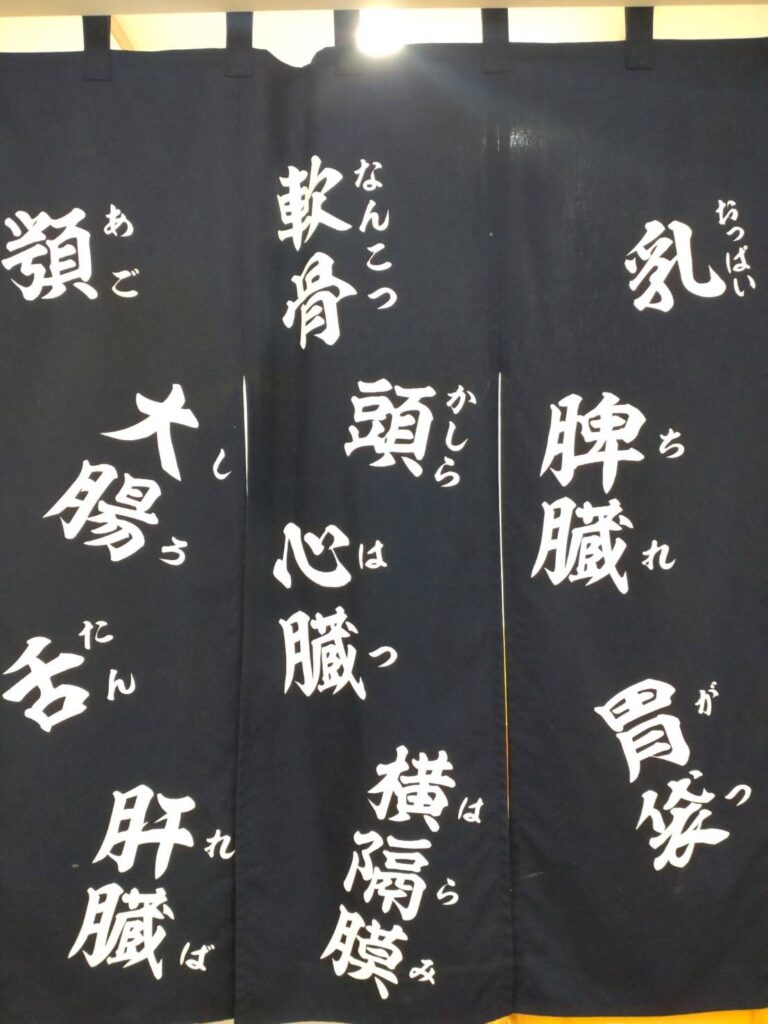 乳
おっぱい
脾臓
ちれ
胃袋
がつ
軟骨
なんこつ
頭
かしら
心臓
はつ
横隔膜
はらみ
顎
あご
大腸
しろ
舌
たん
肝臓
れば